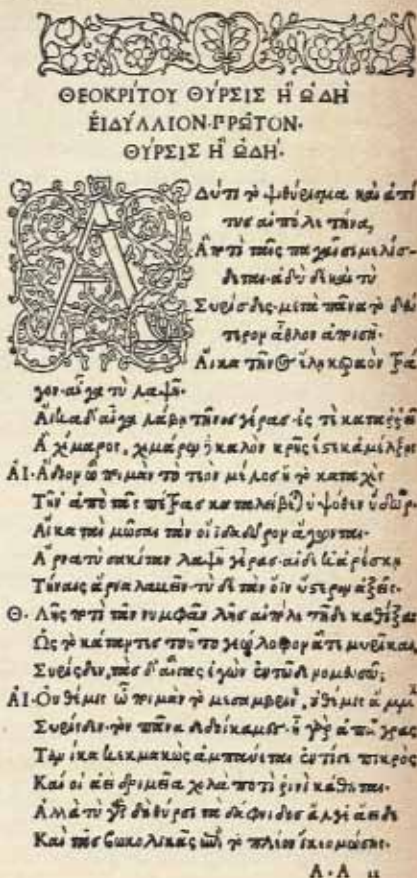 ΘΕΟΚΡΙΤΟΥ ΘΥΡΣΙΣ Ἢ ὨΔΗ
ΕΙΔΥΛΛΙΟΝ·ΠΡΩΤΟΝ·
ΘΥΡΣΙΣ Ἢ ὨΔΗ·
Α Δύ τι τὸ ψιθύρισμα καὶ ἁ πί
τυς αἰπόλε τήνα,
Ἃ ποτὶ ταῖς παγαῖσι μελίσ-
δεται· ἁδὺ δὲ καὶ τὺ
Συρίσδες· μετὰ πᾶνα τὸ δεύ
τερον ἆθλον ἀποισῇ·
Αἴκα τῆνος ἕλῃ κεραὸν τρά
γον· αἶγα τὺ λαψῇ·
Αἴκα δ' αἶγα λάβῃ τῆνος γέρας· ἐς τὲ καταρρεῖ
Ἁ χίμαρος, χιμάρῳ καλὸν κρῆς ἔστε κ' ἀμέλξῃς
ΑΙ·Ἅδιον ὦ ποιμὰν τὸ τεὸν μέλος ἢ τὸ καταχὲς
Τῆν' ἀπὸ τᾶς πέτρας καταλείβεται ὑψόθεν ὕδωρ·
Αἴκα ταὶ μῶσαι τὰν οἴιδα δῶρον ἄγωνται·
Ἄρνα τὺ σακίταν λαψῇ γέρας· αἰ δέ κ' ἀρέσκῃ
Τήναις ἄρνα λαβεῖν· τὺ δὲ τὰν ὄϊν ὕστερον ἀξεῖς·
Θ· Λῇς ποτὶ τᾶν νυμφᾶν λῇς αἰπόλε τῇδε καθίξας
Ὡς τὸ κάταντες τοῦτο γεώλοφον ᾇτε μυρῖκαι,
Συρίσδεν, τὰς δ' αἶγας ἐγὼν ἐν τῷδε νομευσῶ;
ΑΙ·Οὐ θέμις ὦ ποιμὰν τὸ μεσαμβρινὸν, οὐ θέμις ἄμμιν
Συρίσδεν· τὸν πᾶνα δεδοίκαμες· ἦ γὰρ ἀπ' ἄγρας
Τανίκα κεκμακὼς ἀμπαύεται ἐντὶ δὲ πικρὸς
Καὶ οἱ ἀεὶ δριμεῖα χολὰ ποτὶ ῥινὶ κάθηται·
Ἀλλὰ τὺ γὰρ δὴ θύρσι τὰ δάφνιδος ἄλγε' ἄειδες
Καὶ τᾶς βωκολικᾶς ἐπὶ τὸ πλέον ἵκεο μώσας·
Α·Α ii